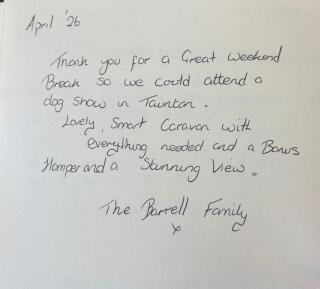 April '26
Thank you for a Great Weekend
Break so we could attend a
dog show in Taunton.
Lovely, Smart Caravan with
everything needed and a Bonus
Hamper and a Stunning View.
The Barrell Family
x